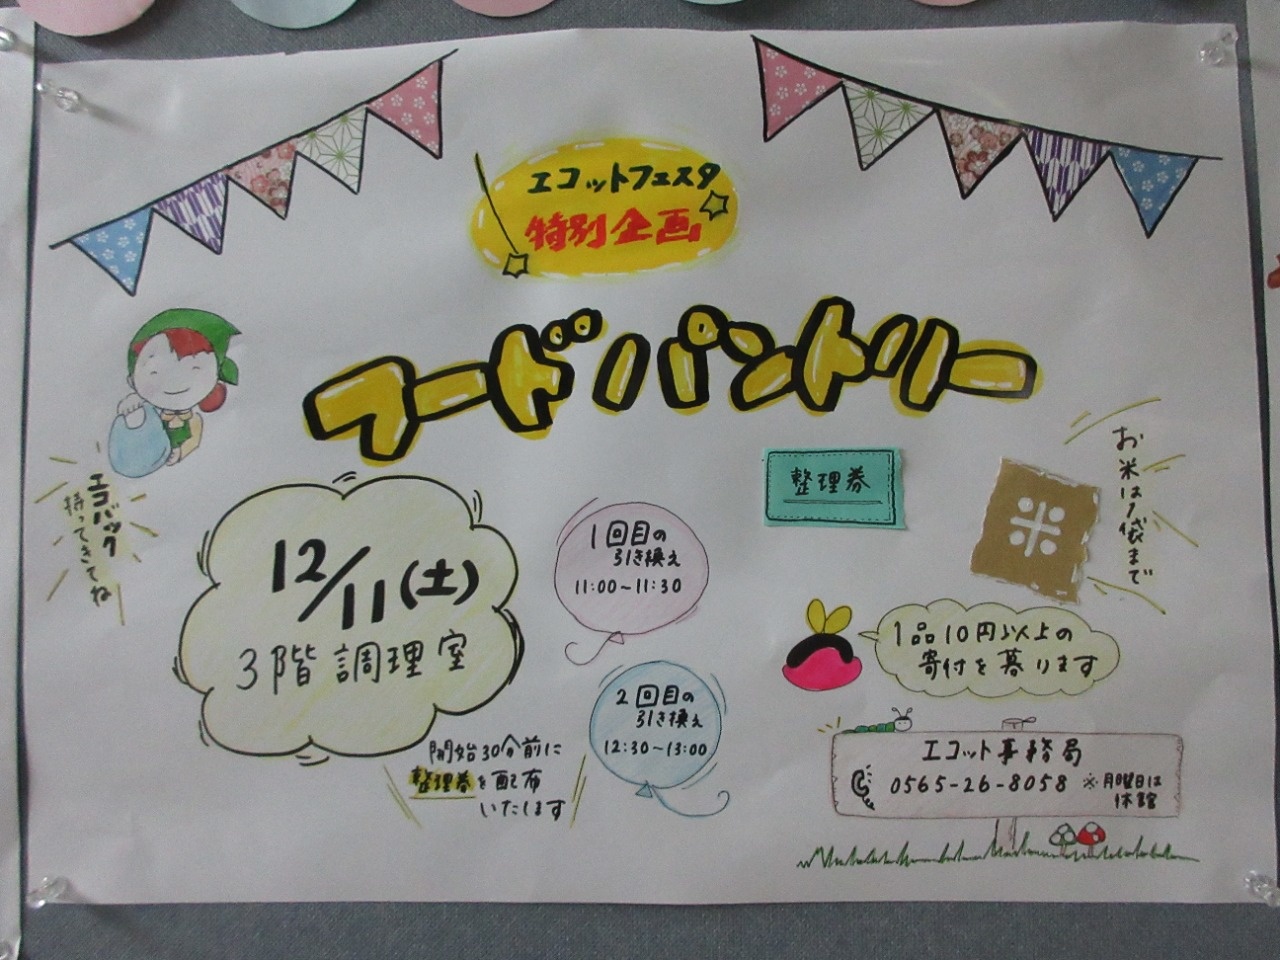 エコットフェスタ
特別企画
フードパントリー
エコバック
持ってきてね
12/11(土)
3階調理室
開始30分前に
整理券を配布
いたします
1回目の
引き換え
11:00~11:30
2回目の
引き換え
12:30~13:00
整理券
米
お米は1袋まで
1品10円以上の
寄付を募ります
エコット事務局
0565-26-8058 ※月曜日は
休館